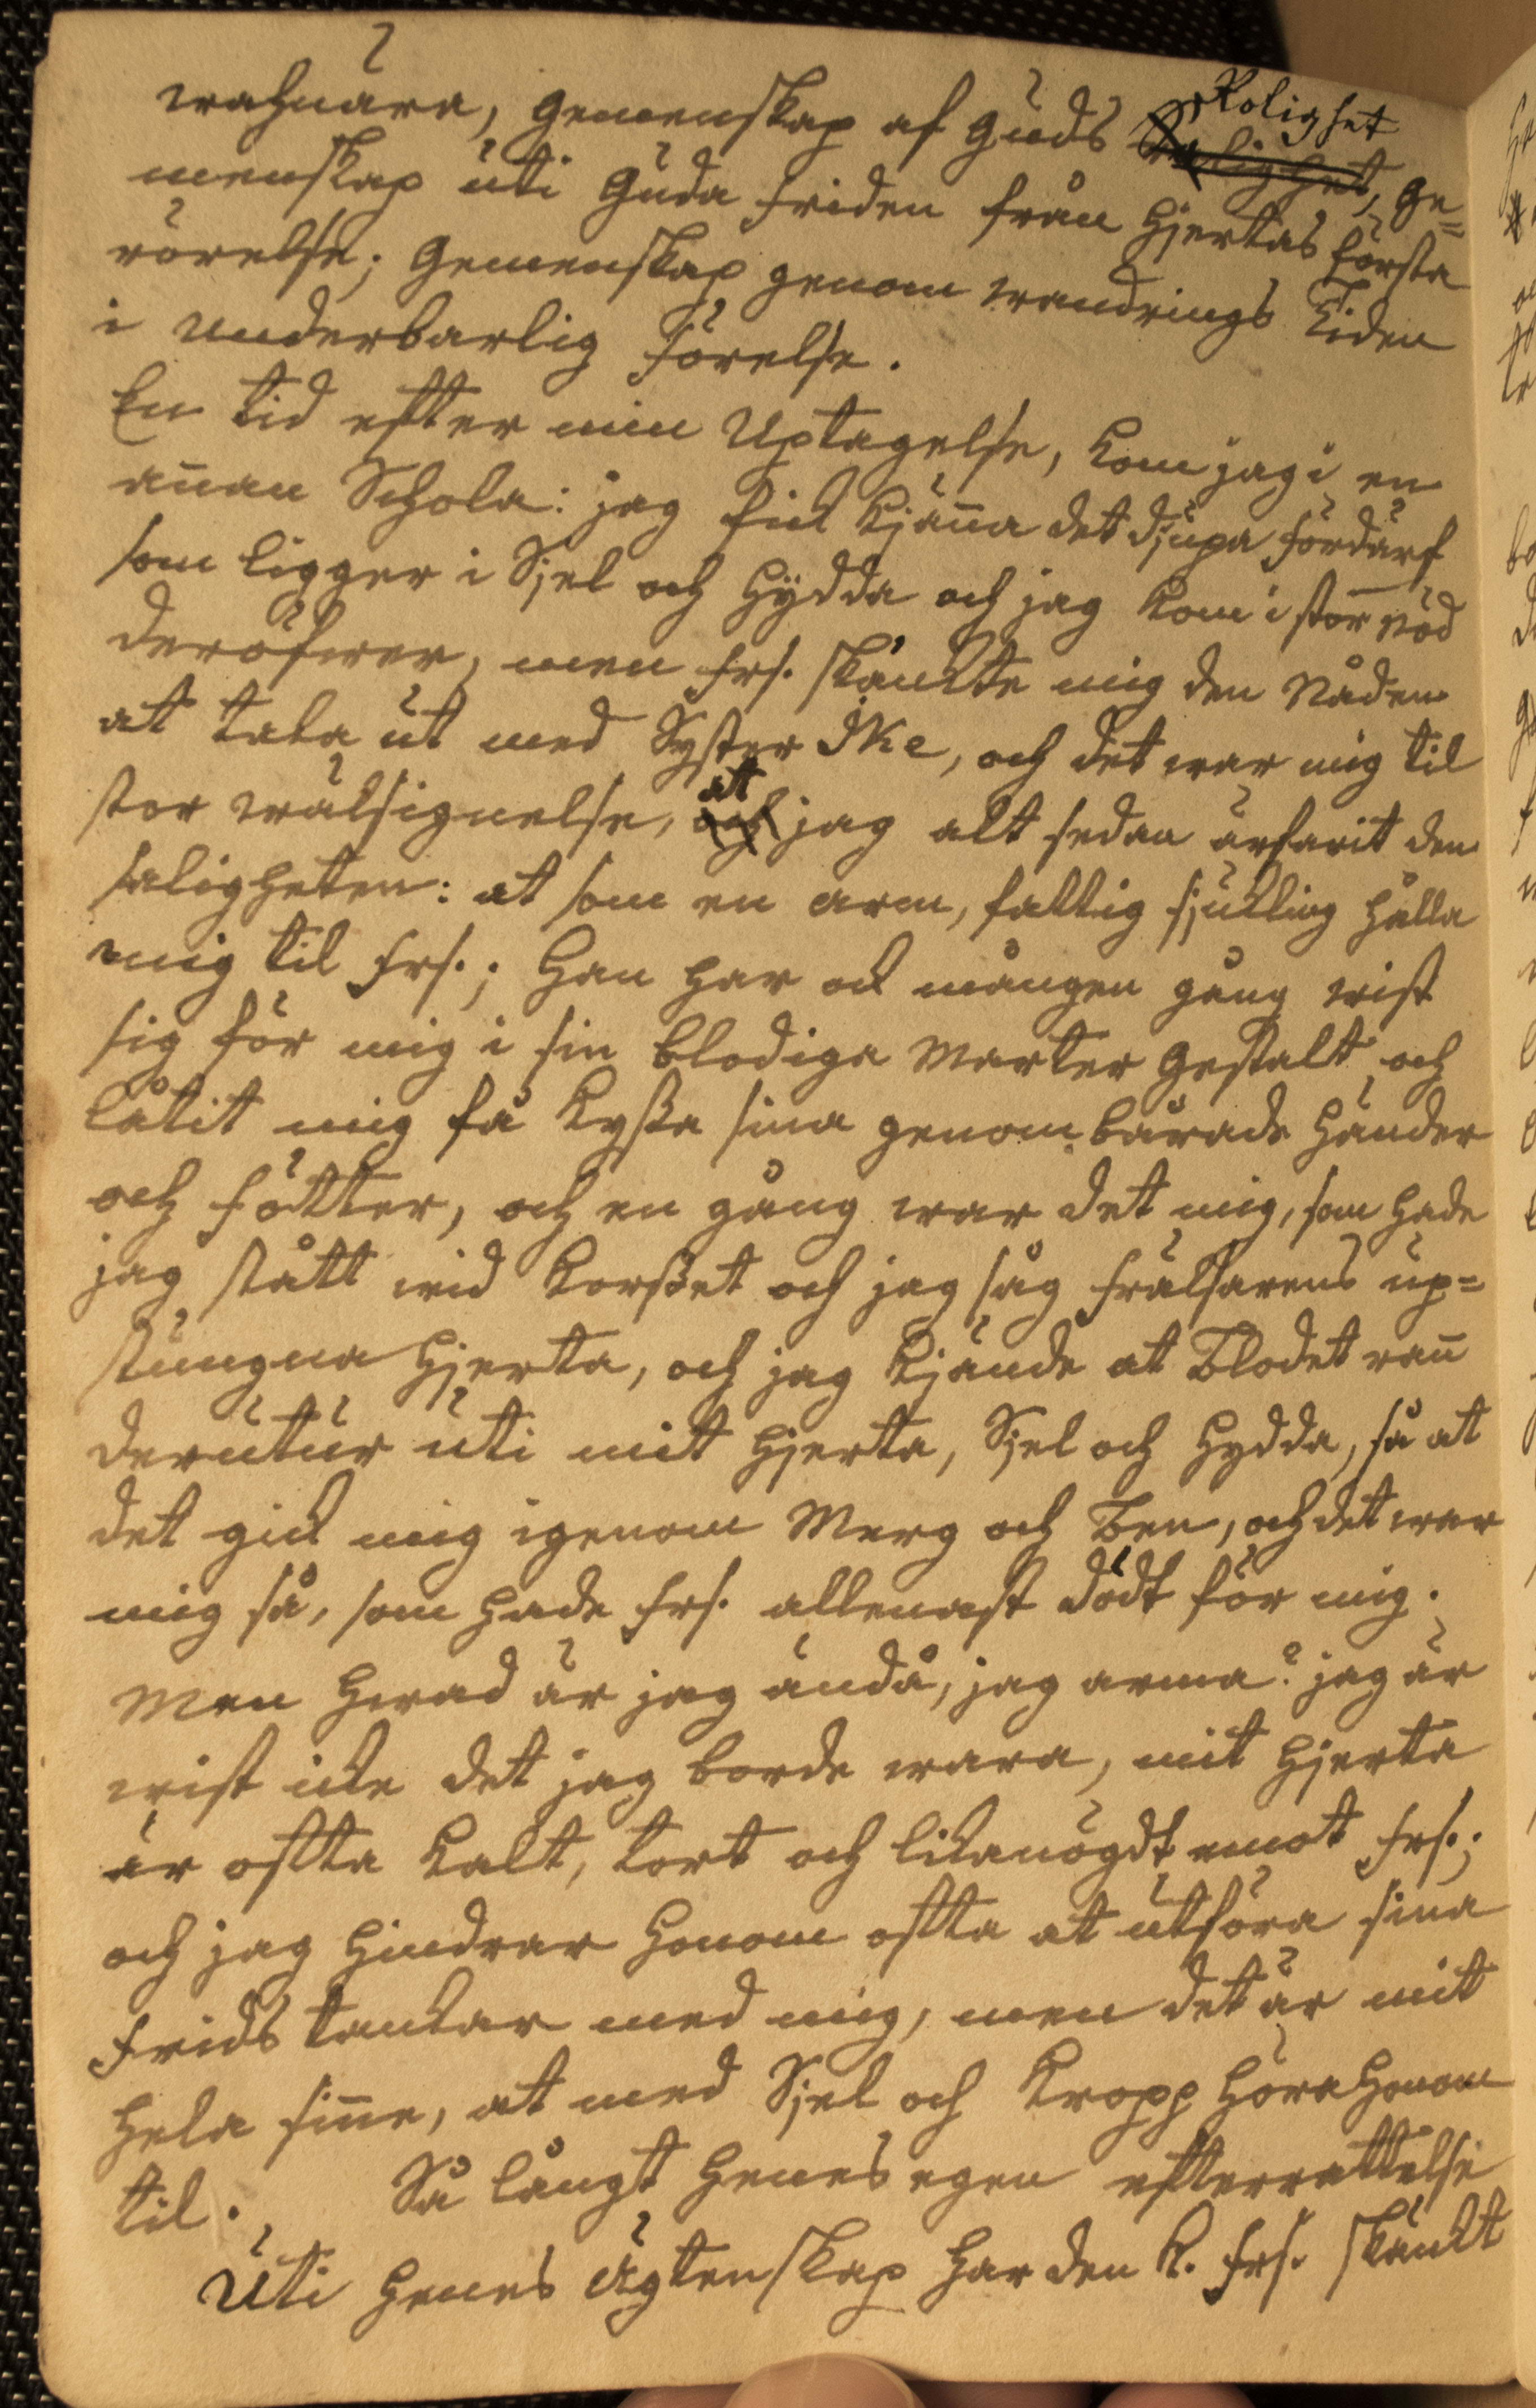 wahnära, Gemenskap af Guds Rolighet, Ge=
menskap uti Guda friden från Hjertas första
rörelse; Gemenskap genom wandrings Tiden
i underbarlig Förelse.
En tid efter min Uptagelse, kom jag i en
an̄an Schola: jag fick kjän̄a det djupa fördärf
som ligger i Sjel och Hÿdda och jag kom i stor nöd
deröfwer, men frs. skänckte mig den Nåden
at tala ut med Syster Ike, och det war mig til
stor wälsignelse, at jag alt sedan ärfarit den
saligheten: at som en arm, fattig sjukling hålla
mig til frs.; Han har ock mången gång wist
sig för mig i sin blodiga Marter Gestalt och
låtit mig få kyssa sina genom bårade Händer
och fötter, och en gång war det mig, som hade
jag stått wid korset och jag såg frälsarens up=
stungna Hjerta, och jag kjände at Blodet ran̄
derutur uti mit Hjerta, Sjel och Hydda, så at
det gick mig igenom Merg och Ben, och det war
mig så, som hade frs. allenast dödt för mig.
Men Hwad är jag ändå, jag arma? jag är
wist icke det jag borde wara, mit Hjerta
är ofta kalt, tort och likanögdt emot frs.;
och jag Hindrar Honom ofta at utföra sina
frids tankar med mig, men det är mit
Hela sin̄e, at med Sjel och Kropp Höra Honom
til. Så långt Henes egen efterrettelse
Uti Henes Ägtenskap har den k. frs. skänckt